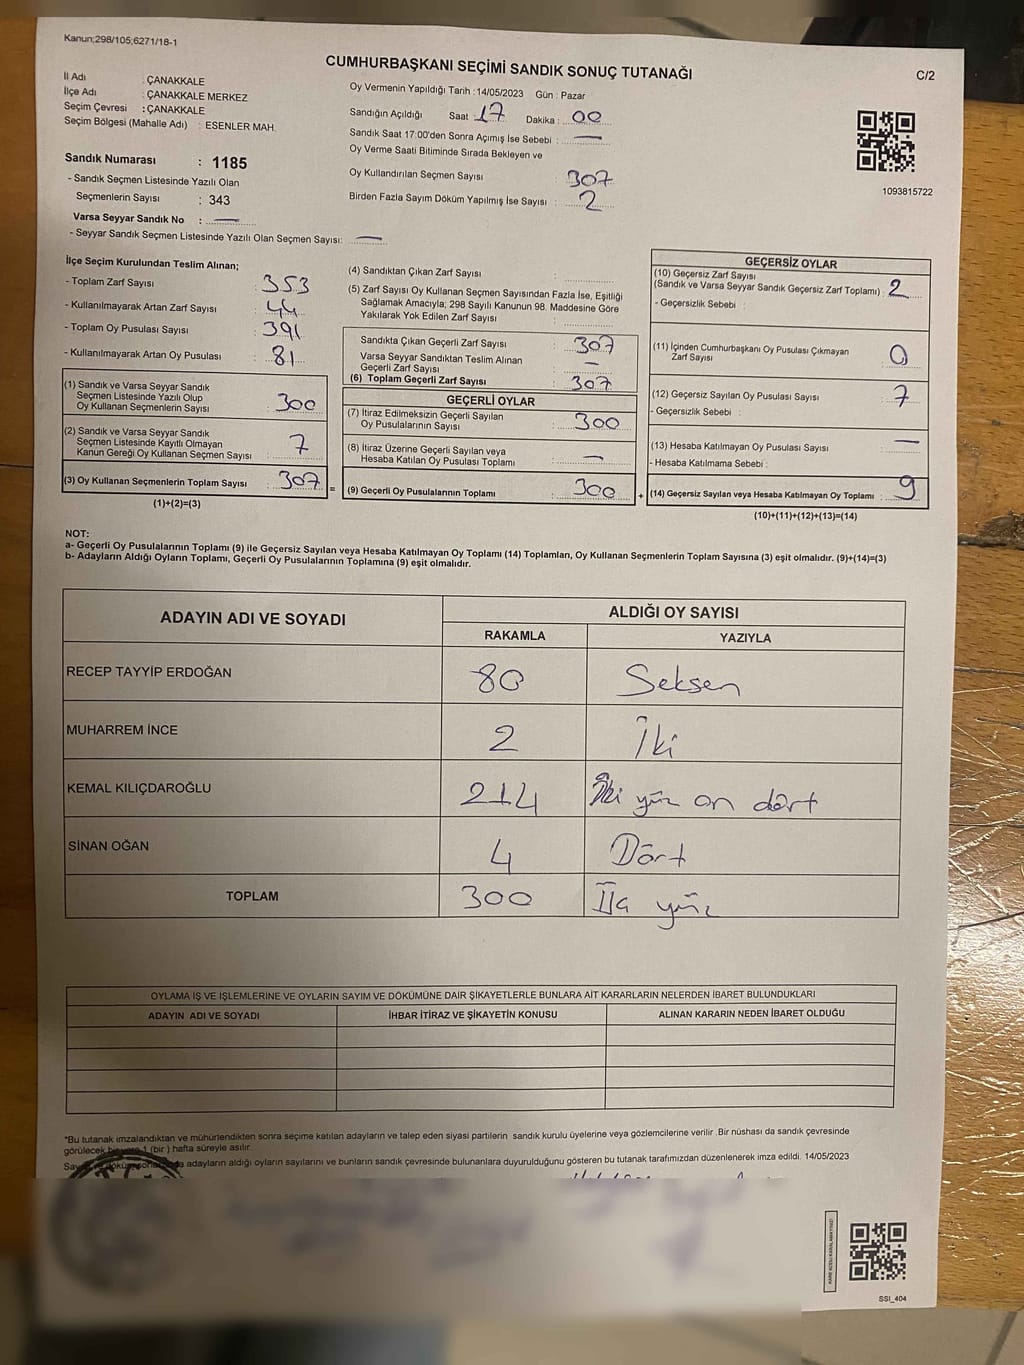 Kanun;298/105;6271/18-1
CUMHURBAŞKANI SEÇİMİ SANDIK SONUÇ TUTANAĞI
C/2
İl Adı : ÇANAKKALE
İlçe Adı : ÇANAKKALE MERKEZ
Seçim Çevresi : ÇANAKKALE
Seçim Bölgesi (Mahalle Adı) : ESENLER MAH.
Sandık Numarası : 1185
- Sandık Seçmen Listesinde Yazılı Olan
Seçmenlerin Sayısı : 343
Varsa Seyyar Sandık No : —
- Seyyar Sandık Seçmen Listesinde Yazılı Olan Seçmen Sayısı: —
Oy Vermenin Yapıldığı Tarih : 14/05/2023 Gün : Pazar
Sandığın Açıldığı Saat : 17 Dakika : 00
Sandık Saat 17:00'den Sonra Açımış İse Sebebi : —
Oy Verme Saati Bitiminde Sırada Bekleyen ve
Oy Kullandırılan Seçmen Sayısı : 307
Birden Fazla Sayım Döküm Yapılmış İse Sayısı : 2
1093815722
İlçe Seçim Kurulundan Teslim Alınan;
- Toplam Zarf Sayısı : 353
- Kullanılmayarak Artan Zarf Sayısı : 44
- Toplam Oy Pusulası Sayısı : 391
- Kullanılmayarak Artan Oy Pusulası : 81
(1) Sandık ve Varsa Seyyar Sandık
Seçmen Listesinde Yazılı Olup
Oy Kullanan Seçmenlerin Sayısı : 300
(2) Sandık ve Varsa Seyyar Sandık
Seçmen Listesinde Kayıtlı Olmayan
Kanun Gereği Oy Kullanan Seçmen Sayısı : 7
(3) Oy Kullanan Seçmenlerin Toplam Sayısı : 307
(1)+(2)=(3)
(4) Sandıktan Çıkan Zarf Sayısı :
(5) Zarf Sayısı Oy Kullanan Seçmen Sayısından Fazla İse, Eşitliği
Sağlamak Amacıyla; 298 Sayılı Kanunun 98. Maddesine Göre
Yakılarak Yok Edilen Zarf Sayısı :
Sandıkta Çıkan Geçerli Zarf Sayısı : 307
Varsa Seyyar Sandıktan Teslim Alınan
Geçerli Zarf Sayısı : —
(6) Toplam Geçerli Zarf Sayısı : 307
GEÇERLİ OYLAR
(7) İtiraz Edilmeksizin Geçerli Sayılan
Oy Pusulalarının Sayısı : 300
(8) İtiraz Üzerine Geçerli Sayılan veya
Hesaba Katılan Oy Pusulası Toplamı : —
= (9) Geçerli Oy Pusulalarının Toplamı : 300
GEÇERSİZ OYLAR
(10) Geçersiz Zarf Sayısı
(Sandık ve Varsa Seyyar Sandık Geçersiz Zarf Toplamı) : 2
- Geçersizlik Sebebi :
(11) İçinden Cumhurbaşkanı Oy Pusulası Çıkmayan
Zarf Sayısı : 0
(12) Geçersiz Sayılan Oy Pusulası Sayısı : 7
- Geçersizlik Sebebi :
(13) Hesaba Katılmayan Oy Pusulası Sayısı : —
- Hesaba Katılmama Sebebi :
+ (14) Geçersiz Sayılan veya Hesaba Katılmayan Oy Toplamı : 9
(10)+(11)+(12)+(13)=(14)
NOT:
a- Geçerli Oy Pusulalarının Toplamı (9) ile Geçersiz Sayılan veya Hesaba Katılmayan Oy Toplamı (14) Toplamları, Oy Kullanan Seçmenlerin Toplam Sayısına (3) eşit olmalıdır. (9)+(14)=(3)
b- Adayların Aldığı Oyların Toplamı, Geçerli Oy Pusulalarının Toplamına (9) eşit olmalıdır.
ADAYIN ADI VE SOYADI ALDIĞI OY SAYISI
RAKAMLA YAZIYLA
RECEP TAYYİP ERDOĞAN 80 Seksen
MUHARREM İNCE 2 İki
KEMAL KILIÇDAROĞLU 214 İki yüz on dört
SİNAN OĞAN 4 Dört
TOPLAM 300 yüz
OYLAMA İŞ VE İŞLEMLERİNE VE OYLARIN SAYIM VE DÖKÜMÜNE DAİR ŞİKAYETLERLE BUNLARA AİT KARARLARIN NELERDEN İBARET BULUNDUKLARI
ADAYIN ADI VE SOYADI İHBAR İTİRAZ VE ŞİKAYETİN KONUSU ALINAN KARARIN NEDEN İBARET OLDUĞU
*Bu tutanak imzalandıktan ve mühürlendikten sonra seçime katılan adayların ve talep eden siyasi partilerin sandık kurulu üyelerine veya gözlemcilerine verilir .Bir nüshası da sandık çevresinde
görülecek bir yere 1 (bir ) hafta süreyle asılır.
adayların aldığı oyların sayılarını ve bunların sandık çevresinde bulunanlara duyurulduğunu gösteren bu tutanak tarafımızdan düzenlenerek imza edildi. 14/05/2023
SSI_404